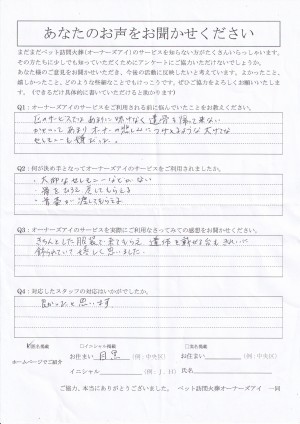 あなたのお声をお聞かせください
まだまだペット訪問火葬(オーナーズアイ)のサービスを知らない方がたくさんいらっしゃいます。
その方たちに少しでも知っていただくためにアンケートにご協力いただけないでしょうか。
あなた様のご意見をお聞かせいただき、今後の活動に反映したいと考えています。よかったこと、
嬉しかったこと、どのような些細なことでもけっこうです、ぜひご協力をよろしくお願いいたします。
(できるだけ具体的に書いていただけると助かります)
Q1:オーナーズアイのサービスをご利用される前に悩んでいたことをお教えください。
区のサービスではあまりに味けなく遺骨も帰って来ない
かといってあまりオーナーの悲しみにつけこむような大げさな
セレモニーも嫌だった。
Q2:何が決め手となってオーナーズアイのサービスをご利用されましたか。
・大げさなセレモニーなどがない
・骨をひろい、戻してもらえる
Q3:オーナーズアイのサービスを実際にご利用なさってみての感想をお聞かせください。
きちんとした服装で来てもらえ、遺体を載せる台もきれいに
飾られていて嬉しく思いました。
Q4:対応したスタッフの対応はいかがでしたか。
良かったと思います。
匿名掲載
□イニシャル掲載
□実名掲載
ホームページでご紹介
お住まい 目黒 (例:中央区)
お住まい (例:中央区)
イニシャル (例:J.H)
氏名
ご協力、本当にありがとうございました。 ペット訪問火葬オーナーズアイ 一同